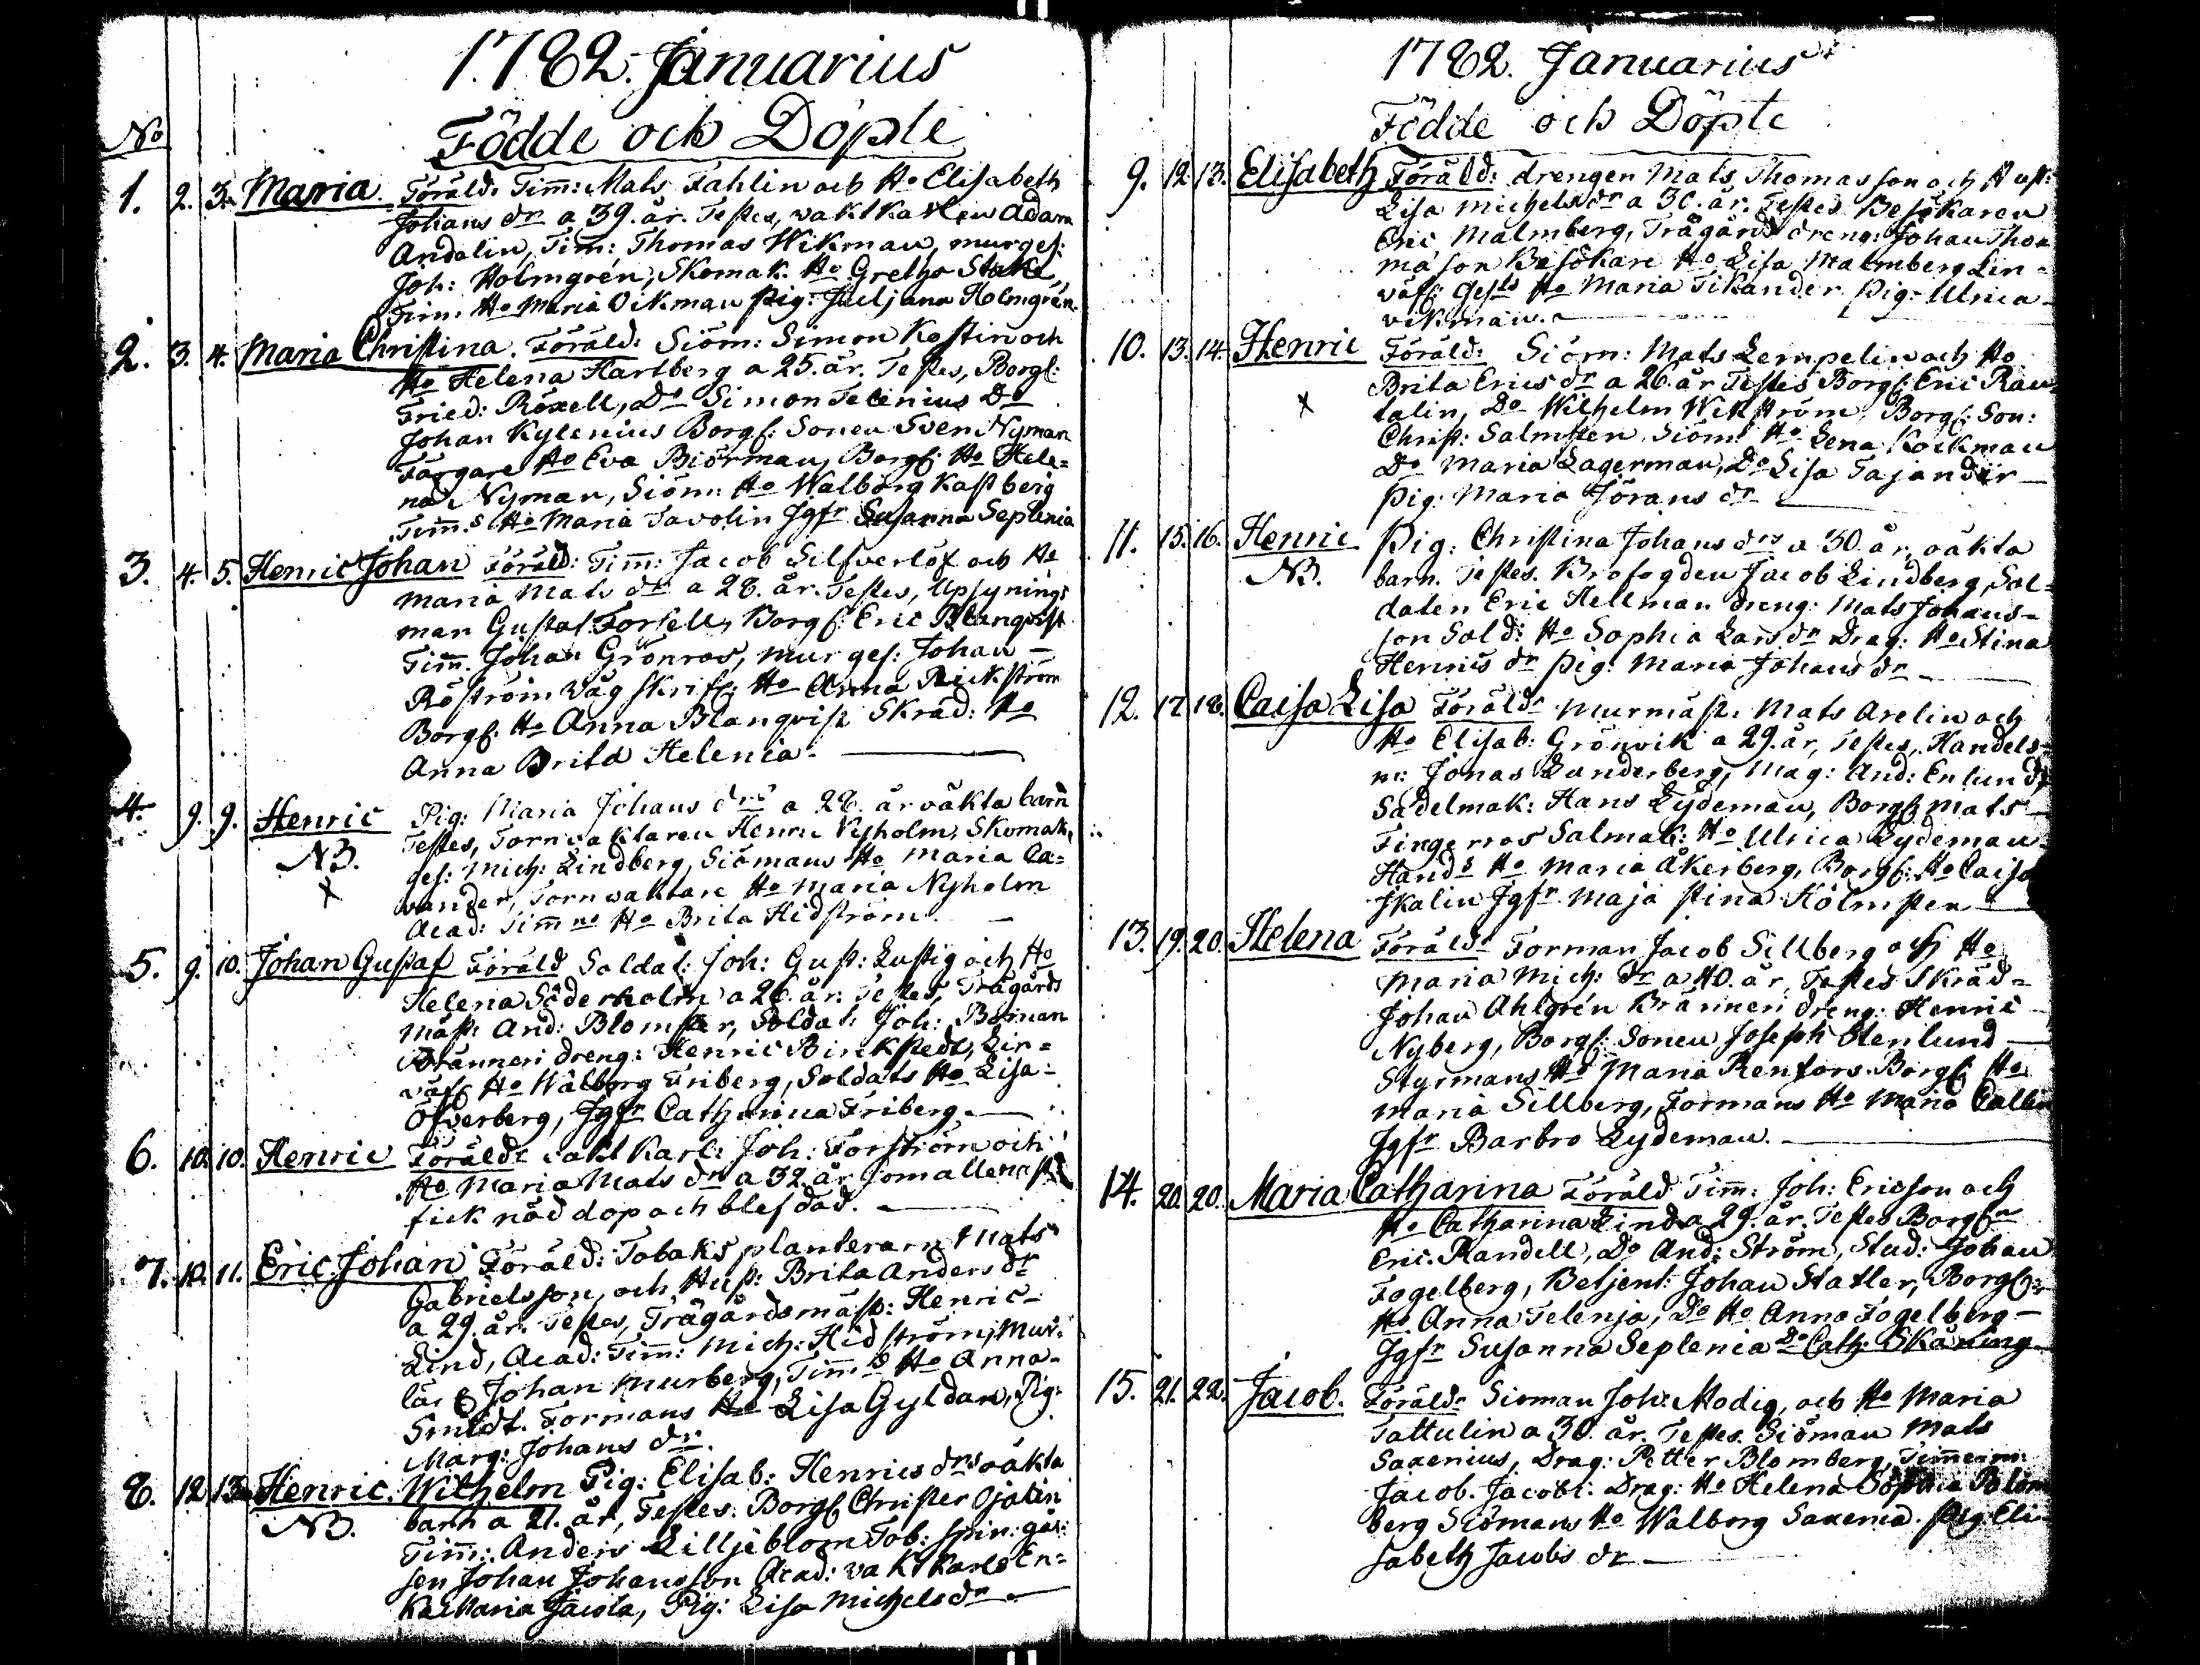 1782. Januarius
Födde och Döpte
No
1. 2. 3. Maria. Föräld: Tim̅: Mats Fahlin och Ho Elisabeth
Johans dr a 39. år. Testes, vaktkarlen Adam
Andelin, Tim: Thomas Wikman, murges:
Joh: Holmgrén, Skomak. Ho Gretha Stake,
Tim. Ho Maria Vikman pig: Juljana Holmgrén
2. 3. 4. Maria Christina. Föräld: Siöm: Simon Kostin och
Ho Helena Hartberg a 25. år. Testes, Borgl:
Fried: Röxell, Do Simon Telenius Do
Johan Kylenius Borgl: Sonen Sven Nyman
Färgare Ho Eva Biörman, Borgl: Ho Hele=
na Nyman, Siöm: Ho Walborg Kastberg
Tim̅s Ho Maria Tavolin Jgfr Susanna Seplenia
3. 4. 5. Henric Johan Föräld: Tim̅: Jacob Silfverlöf och Ho
Maria Mats dr a 28. år. Testes, Upsynings
man Gustaf Forsell, Borgl: Eric Blanqvist
Tim̅. Johan Grönros, mur ges: Johan –
Röström Väg skrif: Ho Anna Rickström
Borgl: Ho Anna Blanqvist Skräd: Ho
Anna Brita Helenia.
4. 9. 9. Henric Pig: Maria Johans drs a 28. år oäkta barn
NB. Testes, Tornvaktaren Henric Nyholm, Skomak,
x ges: Mich: Lindberg, Siömans Ho Maria Ca=
vander, Tornvaktare Ho Maria Nyholm
Acad: Tim̅ns Ho Brita Hidström.
5. 9. 10. Johan Gustaf Föräld Soldat: Joh: Gust: Lustig och Ho
Helena Söderholm a 26. år. Testes, Trägårds
mäst: And: Blomster, Soldat: Joh: Boman
Bränneri dreng: Henric Birkstedt, Lin=
väf: Ho Walborg Friberg, Soldats Ho Lisa
Öfverberg, Jgfr Catharina Friberg.
6. 10. 10. Henric Föräld: vakt Karl: Joh: Forström och
Ho Maria Mats dr a 32. år som allenast
fick nöd dop och blef död.
7. 10. 11. Eric Johan Föräld: Tobaks planteraren Mats
Gabrielsson, och Hust: Brita Anders dr
a 29. år. Testes, Trägårdsmäst: Henric
Lind, Acad: Tim̅: Mich: Hidström, Mur:
lär Johan Murberg, Tim̅s Ho Anna
Smidt. Formans Ho Lisa Gyldan, Pig:
Marg: Johans dr.
8. 12 13. Henric. Wilhelm Pig: Elisab: Henrics drs oäkta
NB. barn a 21. år, Testes: Borgl: Christer Ojalin
Tim̅: Anders Lilljeblom Tob: spin: gäs:
sen Johan Johansson Acad: vakt karls En=
ka Maria Jacola, Pig: Lisa Michels dr
1782. Januarius
Födde och Döpte
9. 12 13. Elisabeth Föräld: drengen Mats Thomasson och Hust:
Lisa Michels dr a 30. år. Testes Besökaren
Eric Malmberg, Trägårds dreng: Johan Tho
masson Besökare Ho Lisa Malmberg Lin=
väf: Ho Maria Tikander Pig: Ulrica
vikman.
10. 13. 14. Henric Föräld: Siöm: Mats Lempelin och Ho
x Brita Erics dr a 26. år Testes Borgl: Eric Rau
talin, Do Wilhelm Wikström, Borgl: Son:
Christ: Salmsten Siöm: Ho Lena Kockman
Do Maria Lagerman, Do Lisa Tajander
Pig: Maria Jörans dr
11. 15. 16. Henric Pig: Christina Johans drs a 30 år, oäkta
NB. barn. Testes. Brofogden Jacob Lindberg, Sol=
daten Eric Hellman dreng: Mats Johans=
son Sold: Ho Sophia Lars dr Drag: Ho Stina
Henrics dr pig: Maria Johans dr
12. 17. 18. Caisa Lisa Föräld: Murmäst: Mats Arelin och
Ho Elisab: Grönvik a 29. år, Testes, Handels=
m: Jonas Zanderberg, Mag: And: Enlund,
Sadelmak: Hans Lydeman, Borgl: Mats
Fingerros Salmak: Ho Ulrica Lydeman
Hands Ho Maria Åkerberg, Borgl: Ho Caisa
Jkalin Jgfr Maja stina Holmsten
13. 19. 20. Helena Föräld: Forman Jacob Sillberg och Ho
Maria Mich: dr a 40. år, Testes Skräd=
Johan Ahlgrén Bränneri dreng: Henric
Nyberg, Borgl: Sonen Joseph Stenlund
Styrmans Ho Maria Renfors Borgl: Ho
Maria Sillberg, Formans Ho Maria
Jgfr Barbro Lydeman.
14. 20. 20. Maria Catharina Föräld Tim̅: Joh: Ericson och
Ho Catharina Lind a 29. år. Testes Borgl:
Eric. Randell, Do And: Ström, Stud: Johan
Fogelberg, Betjent: Johan Statler, Borgl:
Ho Anna Telenja, Do Ho Anna Fogelberg
Jgfr Susanna Seplenia Do Cath: Skäning
15. 21. 22. Jacob. Föräld: Sioman Joh: Modig, och Ho Maria
Tattulin a 30. år. Testes. Siöman Mats
Saxenius, Drag: Petter Blomberg, Tim̅erm:
Jacob. Jacobs: Drag: Ho Helena Sophia Blom
berg Siömans Ho Walborg Saxenia. Pig: Eli
sabeth Jacobs dr